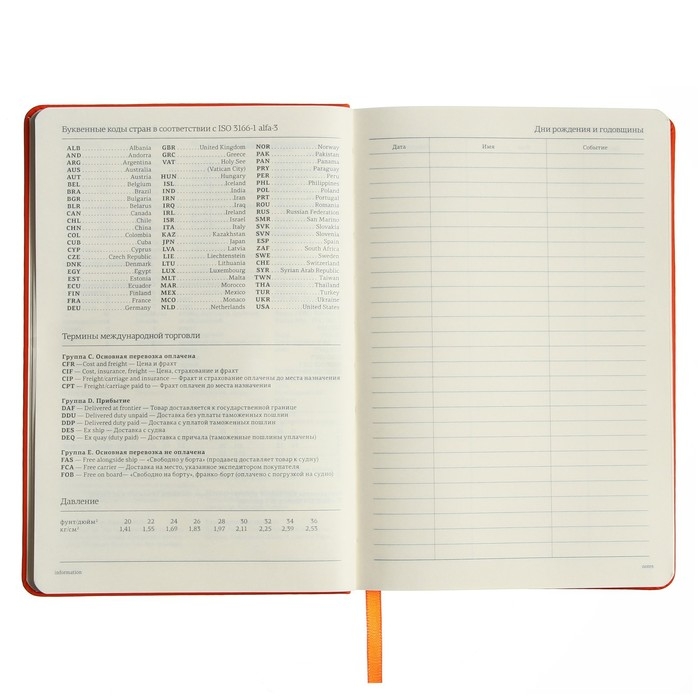 Буквенные коды стран в соответствии с ISO 3166-1 alfa-3
ALB Albania
AND Andorra
ARG Argentina
AUS Australia
AUT Austria
BEL Belgium
BRA Brazil
BGR Bulgaria
BLR Belarus
CAN Canada
CHL Chile
CHN China
COL Colombia
CUB Cuba
CYP Cyprus
CZE Czech Republic
DNK Denmark
EGY Egypt
EST Estonia
ECU Ecuador
FIN Finland
FRA France
DEU Germany
GBR United Kingdom
GRC Greece
VAT Holy See
(Vatican City)
HUN Hungary
ISL Iceland
IND India
IRN Iran
IRQ Iraq
IRL Ireland
ISR Israel
ITA Italy
KAZ Kazakhstan
JPN Japan
LVA Latvia
LIE Liechtenstein
LTU Lithuania
LUX Luxembourg
MLT Malta
MAR Morocco
MEX Mexico
MCO Monaco
NLD Netherlands
NOR Norway
PAK Pakistan
PAN Panama
PRY Paraguay
PER Peru
PHL Philippines
POL Poland
PRT Portugal
ROU Romania
RUS Russian Federation
SMR San Marino
SVK Slovakia
SVN Slovenia
ESP Spain
ZAF South Africa
SWE Sweden
CHE Switzerland
SYR Syrian Arab Republic
TWN Taiwan
THA Thailand
TUR Turkey
UKR Ukraine
USA United States
Термины международной торговли
Группа С. Основная перевозка оплачена
CFR — Cost and freight — Цена и фрахт
CIF — Cost, insurance, freight — Цена, страхование и фрахт
CIP — Freight/carriage and insurance — Фрахт и страхование оплачены до места назначения
CPT — Freight/carriage paid to — Фрахт оплачен до места назначения
Группа D. Прибытие
DAF — Delivered at frontier — Товар доставляется к государственной границе
DDU — Delivered duty unpaid — Доставка без уплаты таможенных пошлин
DDP — Delivered duty paid — Доставка с уплатой таможенных пошлин
DES — Ex ship — Доставка с судна
DEQ — Ex quay (duty paid) — Доставка с причала (таможенные пошлины уплачены)
Группа Е. Основная перевозка не оплачена
FAS — Free alongside ship — «Свободно у борта» (продавец доставляет товар к судну)
FCA — Free carrier — Доставка на место, указанное экспедитором покупателя
FOB — Free on board— «Свободно на борту», франко-борт (оплачено с погрузкой на судно)
Давление
фунт/дюйм² 20 22 24 26 28 30 32 34 36
кг/см² 1,41 1,55 1,69 1,83 1,97 2,11 2,25 2,39 2,53
information
Дни рождения и годовщины
Дата Имя Событие
notes